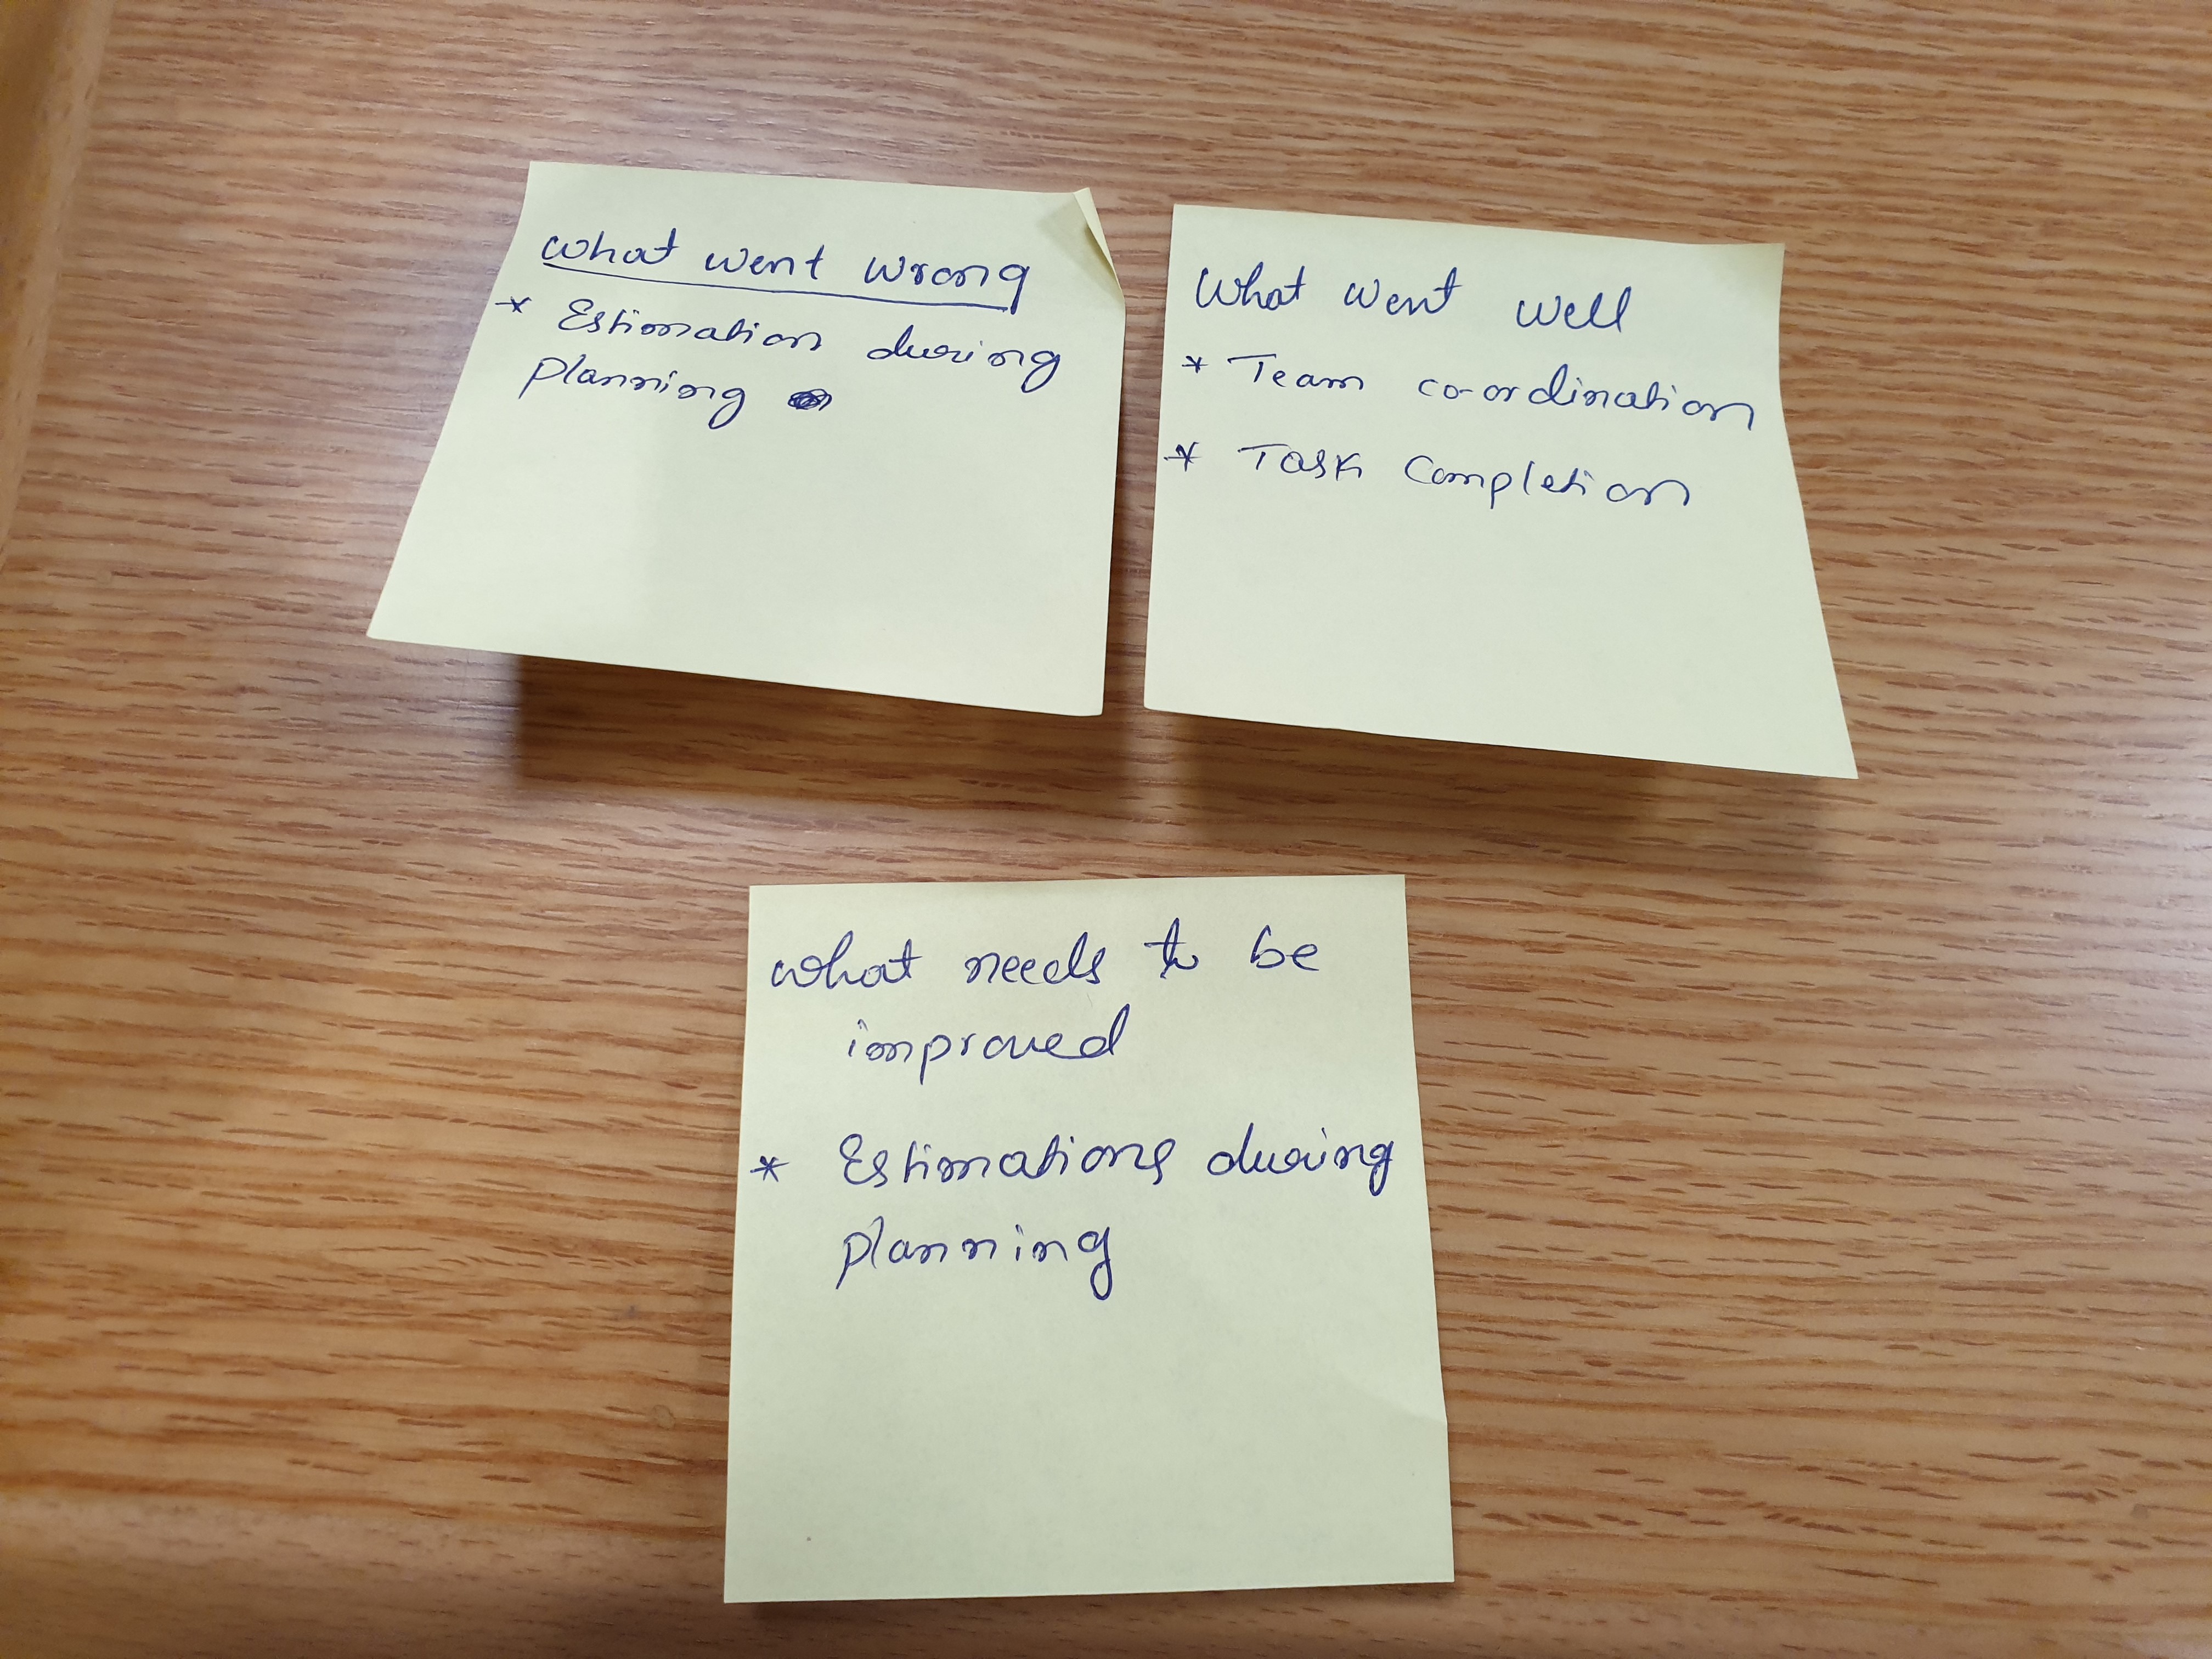 What went wrong
* Estimation during
planning
What went well
* Team co-ordination
* Task Completion
what needs to be
improved
* Estimations during
planning